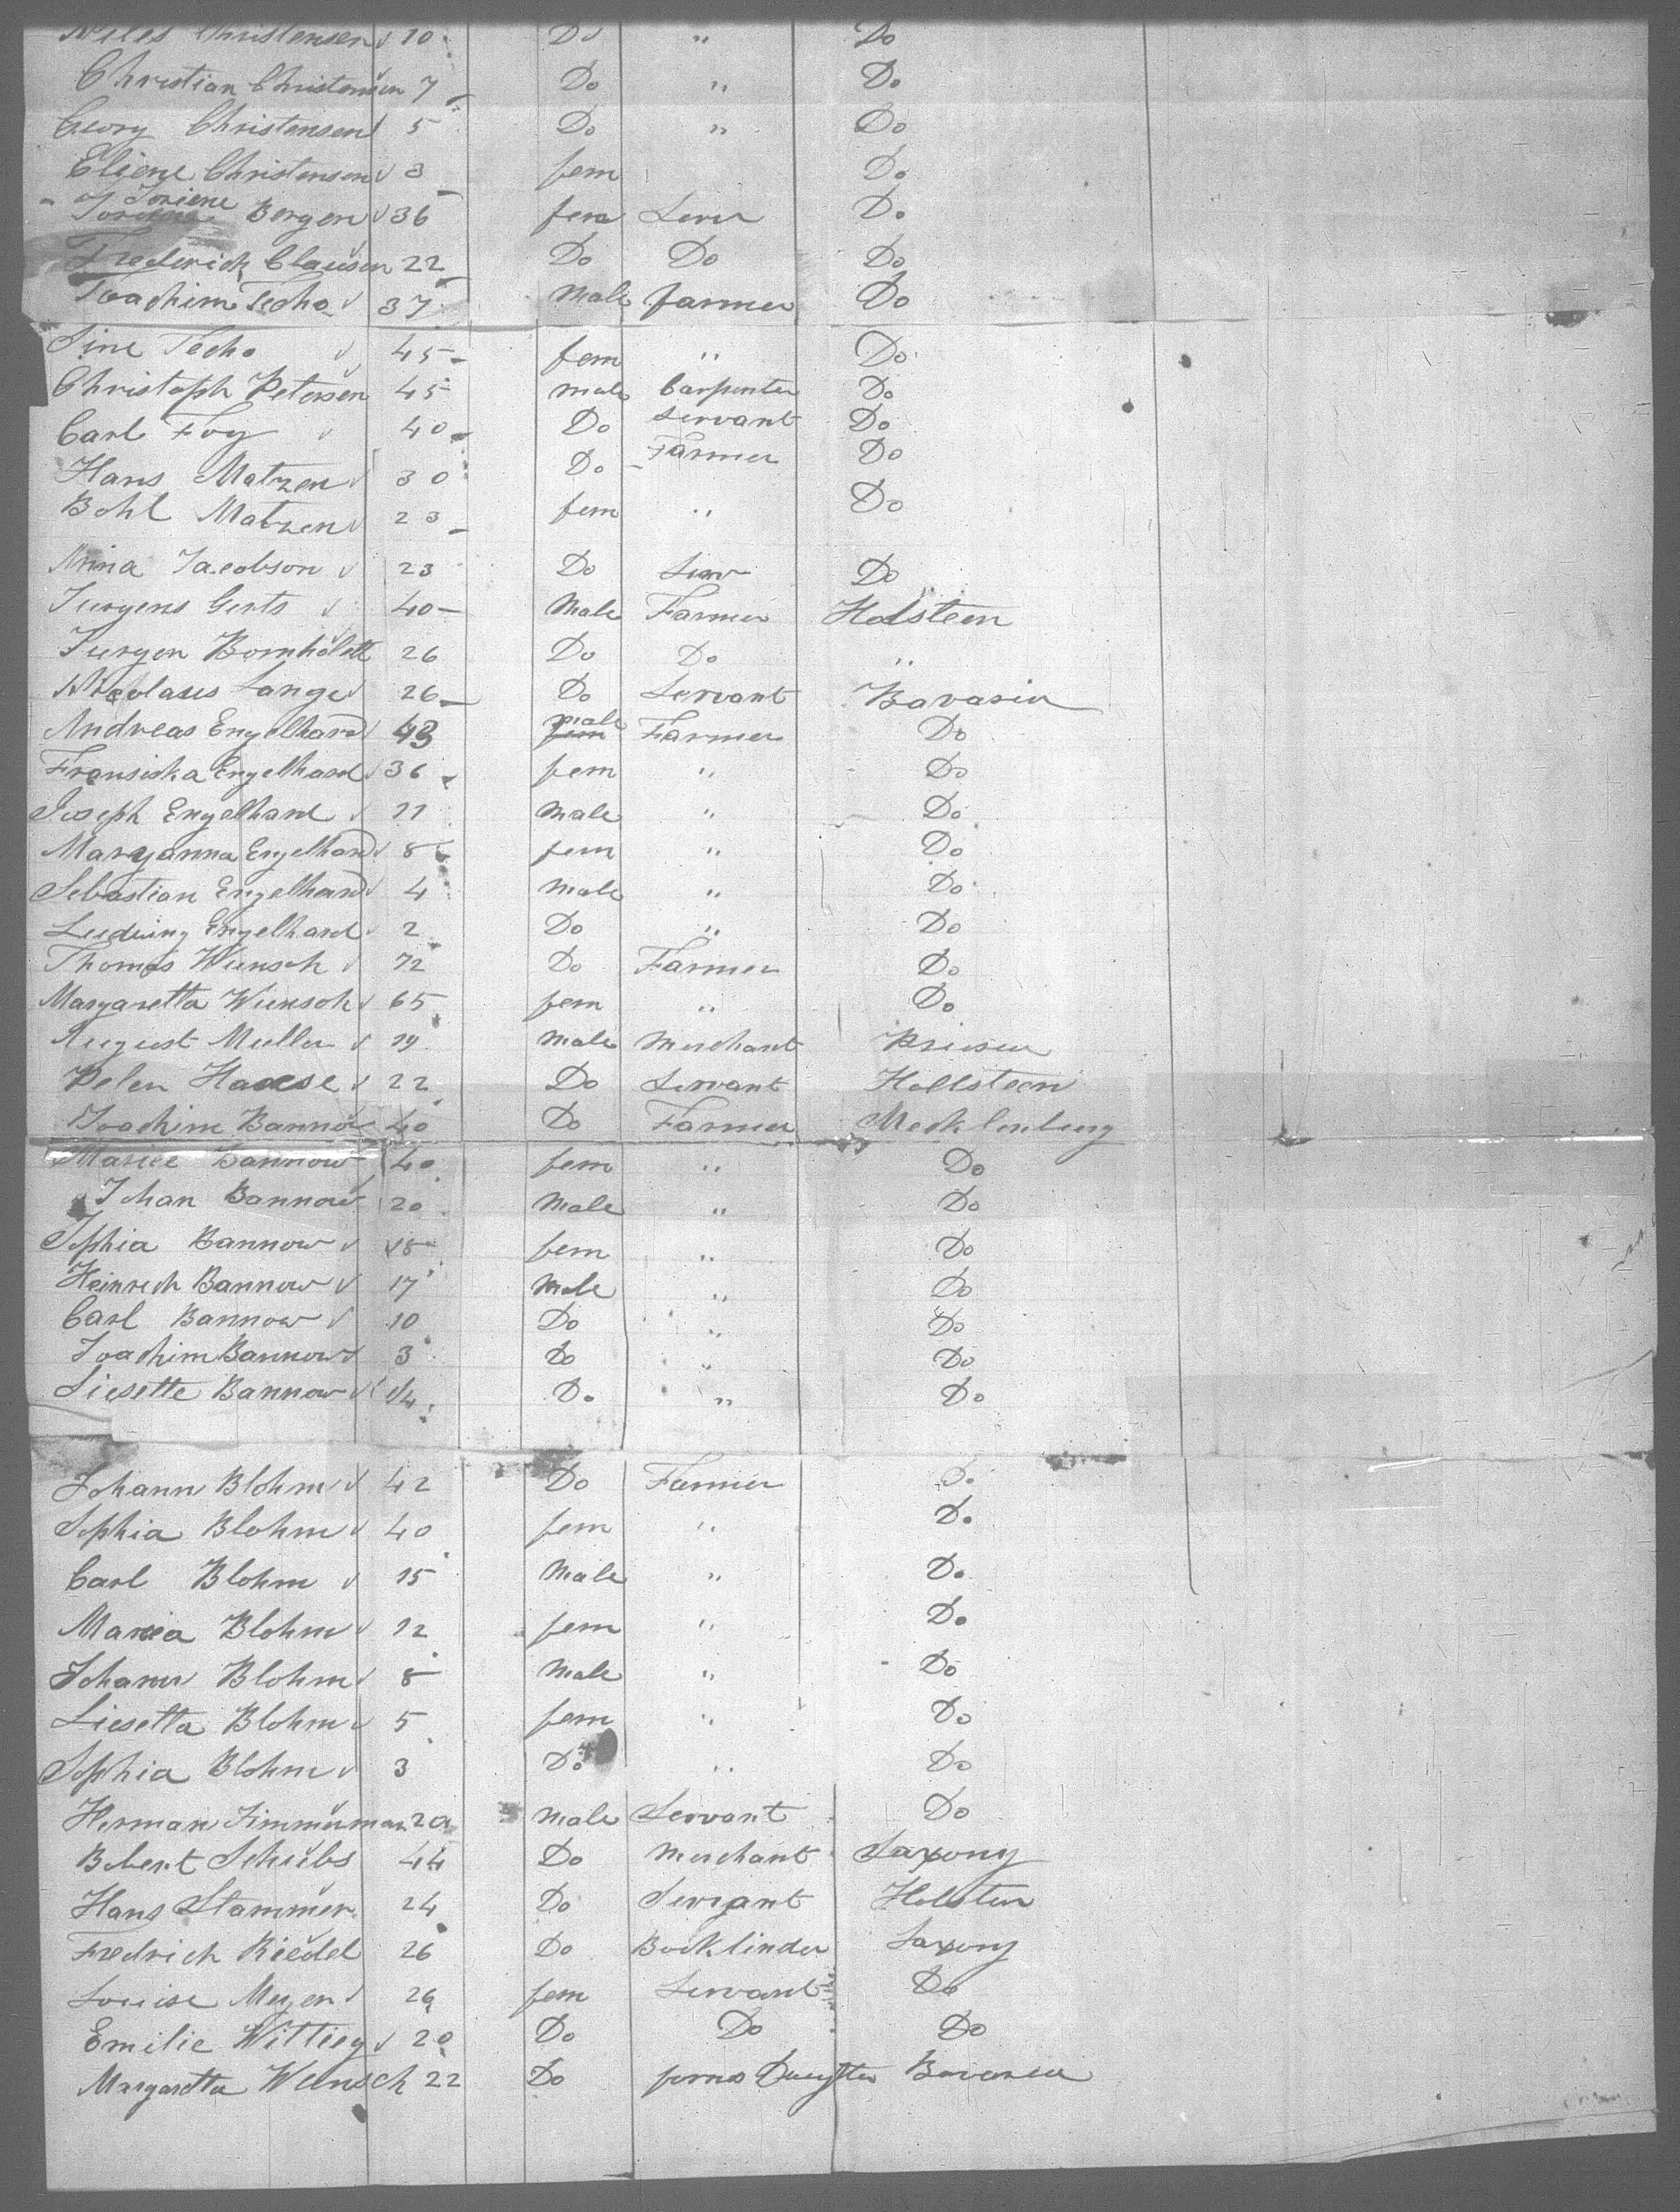 Niles Christensen 10 Do " Do
Christian Christensen 7 Do " Do
Georg Christensen 5 Do " Do
Eliene Christensen 3 fem Do
Soriene Bergen 36 fem Do
Frederick Clausen 22 Do Do Do
Joachim Techo 37 Male farmer Do
Sine Techo 45 fem " Do
Christoph Petersen 45 male Carpenter Do
Carl Foy 40 Do Servant Do
Hans Matzen 30 Do Farmer Do
Bohl Matzen 23 fem " Do
Anna Jacobson 23 Do Serv Do
Jurgens Gerts 40 Male Farmer Holsteen
Jurgen Bornholdt 26 Do Do "
Nicolaus Lange 26 Do Servant Bavaria
Andreas Engelhard 43 male Farmer Do
Fransiska Engelhard 36 fem " Do
Joseph Engelhard 11 Male " Do
Maryanna Engelhard 8 fem " Do
Sebastian Engelhard 4 Male " Do
Ludwig Engelhard 2 Do " Do
Thomas Wunsch 72 Do Farmer Do
Margaretta Wunsch 65 fem " Do
August Muller 19 Male Merchant
Peter Haase 22 Do Servant Hollsteen
Joachim Bannow 40 Do Farmer Mecklenburg
Mariee Bannow 40 fem " Do
Johan Bannow 20 Male " Do
Sophia Bannow 18 fem " Do
Heinrich Bannow 17 Male " Do
Carl Bannow 10 Do " Do
Joachim Bannow 3 Do " Do
Liesette Bannow 14 Do " Do
Johann Blohm 42 Do Farmer Do
Sophia Blohm 40 fem " Do
Carl Blohm 15 Male " Do
Maria Blohm 12 fem " Do
Johann Blohm 8 Male " Do
Liesetta Blohm 5 fem " Do
Sophia Blohm 3 Do " Do
Herman Zimmerman Male Servant Do
Robert 44 Do Merchant Saxony
Hans Stammer 24 Do Servant Holsten
Fredrich Riedel 26 Do Bookbinder Saxony
Louise Meyer fem Servant Do
Emilie Wittieg 20 Do Do Do
Margaretta Wunsch 22 Do Bavaria